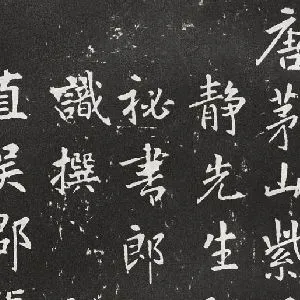 唐茅山紫
静先生
秘書郎
識撰
直吴郡